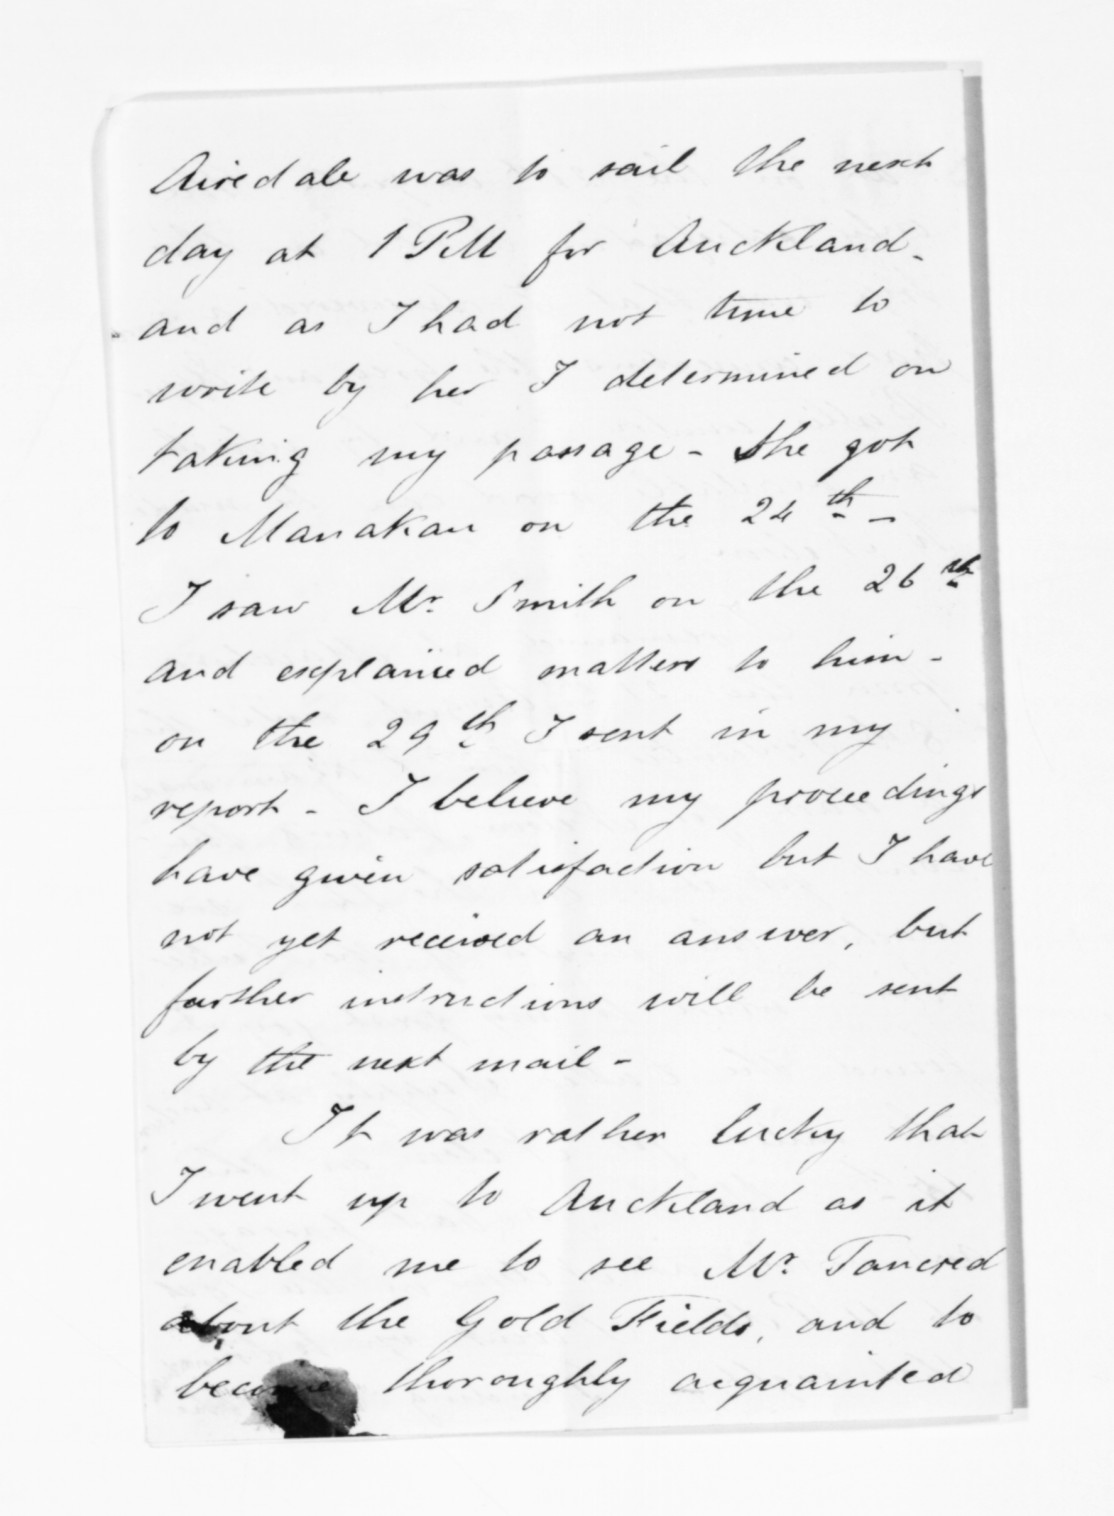 Airedale was to sail the next
day at 1 PM for Auckland -
and as I had not time to
write by her I determined on
taking my passage - she got
to Manakau on the 24th -
I saw Mr. Smith on the 26th
and explained matters to him -
on the 29th I sent in my
report - I believe my proceedings
have given satisfaction but I have
not yet received an answer, but
further instructions will be sent
by the next mail -
It was rather lucky that
I went up to Auckland as it
enabled me to see Mr. Tancred
about the Gold Fields, and to
become thoroughly acquainted